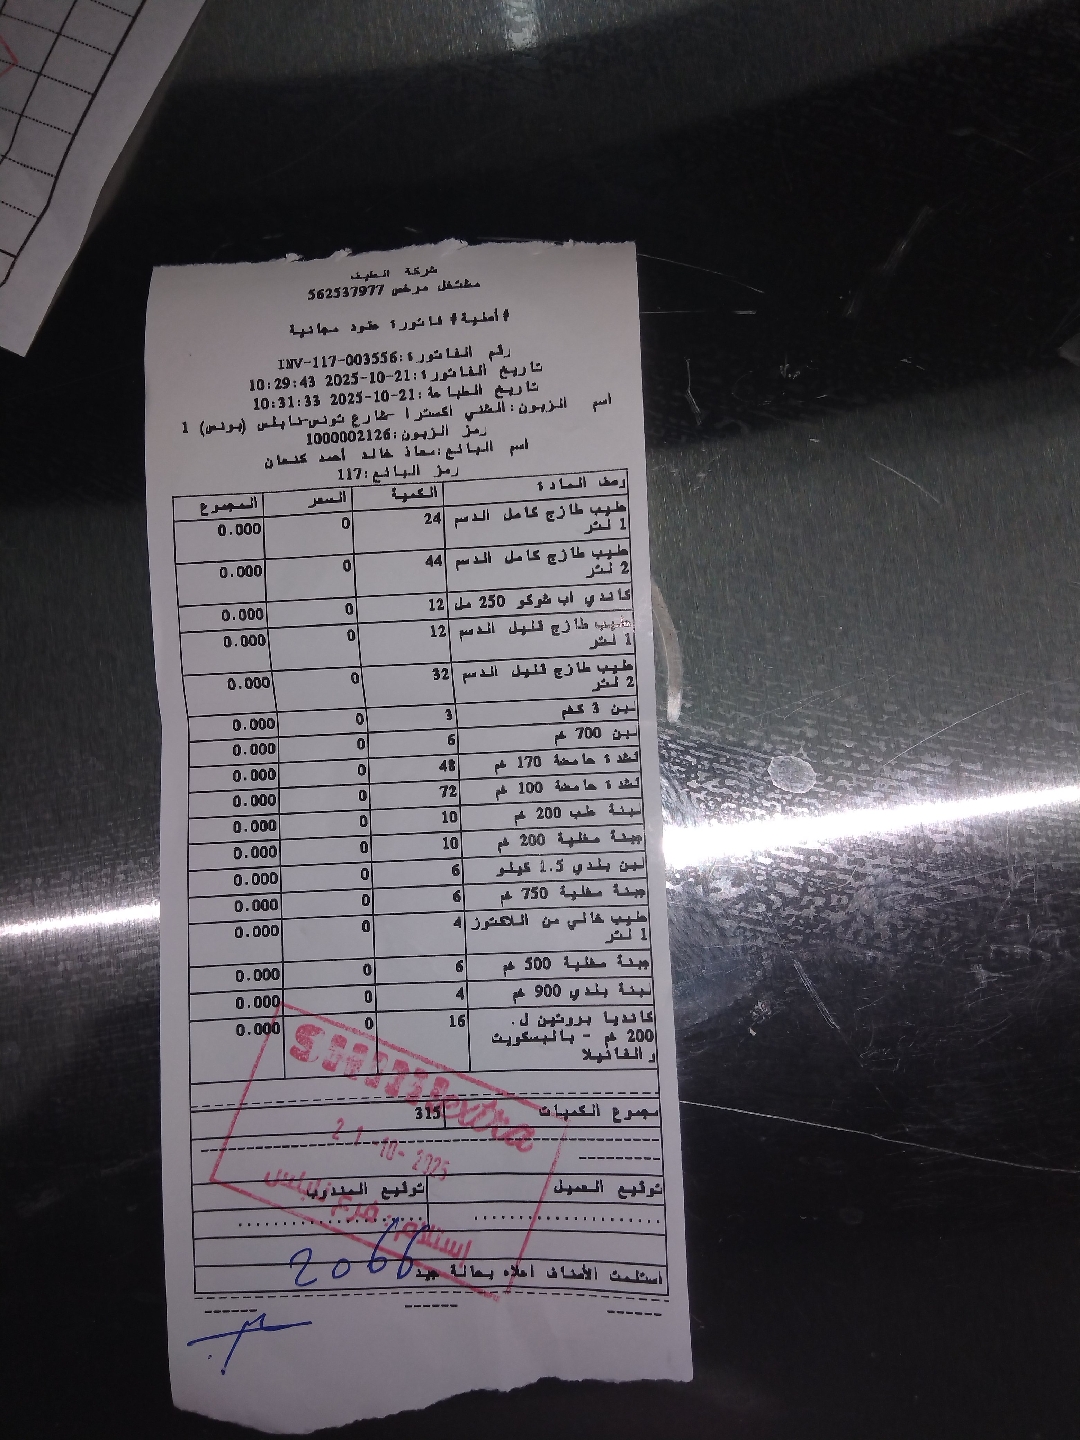 شركة الطيف
مشتغل مرخص 562537977
#أصلية# فاتورة عقود مجانية
رقم الفاتورة: INV-117-003556
تاريخ الفاتورة: 21-10-2025 10:29:43
تاريخ الطباعة: 21-10-2025 10:31:33
اسم الزبون: الشني اكسترا -شارع تونس-نابلس (بونس) 1
رمز الزبون: 1000002126
اسم البائع: معاذ خالد أحمد كنعان
رمز البائع: 117
وصف المادة الكمية السعر المجموع
حليب طازج كامل الدسم 24 0 0.000
1 لتر
حليب طازج كامل الدسم 44 0 0.000
2 لتر
كاندي اب شوكو 250 مل 12 0 0.000
حليب طازج قليل الدسم 12 0 0.000
1 لتر
حليب طازج قليل الدسم 32 0 0.000
2 لتر
لبن 3 كغم 3 0 0.000
لبن 700 غم 6 0 0.000
قشدة حامضة 170 غم 48 0 0.000
قشدة حامضة 100 غم 72 0 0.000
لبنة علب 200 غم 10 0 0.000
جبنة مغلية 200 غم 10 0 0.000
لبن بلدي 1.5 كيلو 6 0 0.000
جبنة مغلية 750 غم 6 0 0.000
حليب خالي من اللاكتوز 4 0 0.000
1 لتر
جبنة مغلية 500 غم 6 0 0.000
لبنة بلدي 900 غم 4 0 0.000
كانديا بروتين ل. 16 0 0.000
200 غم - بالبسكويت
والفانيلا
extra
مجموع الكميات 315
21-10-2025
توقيع العميل توقيع المندوب
استلام - فرع نابلس
2066
استلمت الأصناف اعلاه بحالة جيد